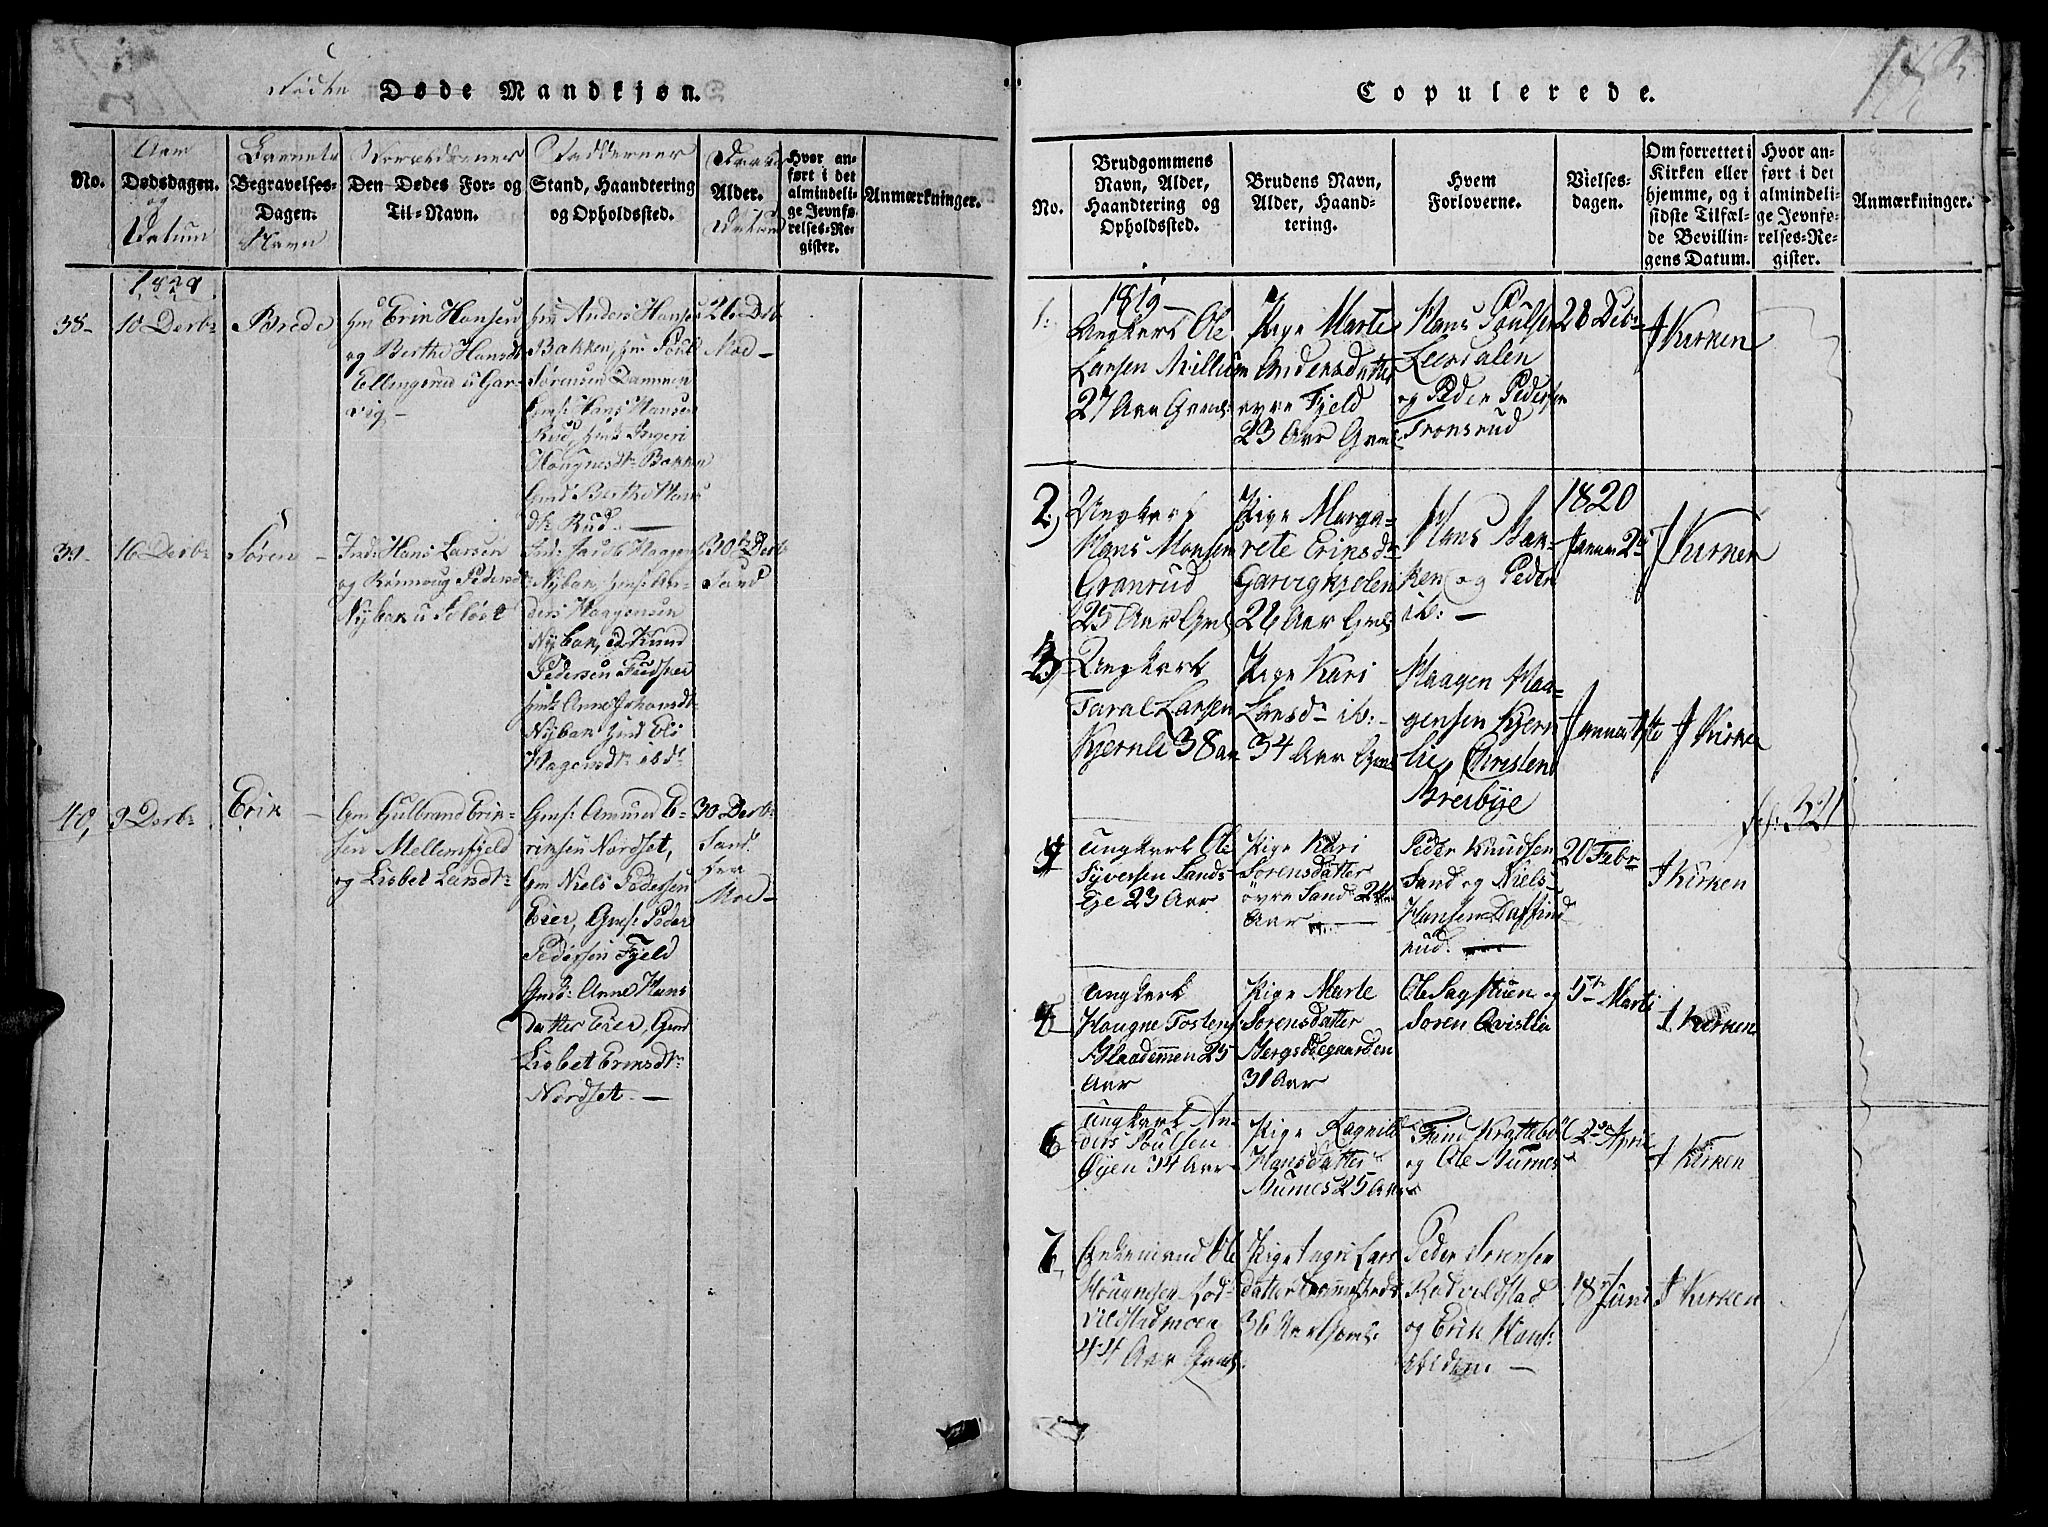 Fødte Døde Mandkjøn.
No.
Aar
Dødsdagen.
og
Datum
Barnets
Begravelses-
Dagen.
Navn
Forældrenes
Den Dødes For- og
Til-Navn.
Faddernes
Stand, Haandtering
og Opholdssted.
Alder.
Hvor an-
ført i det
almindeli-
ge Jevnfø-
relses-Re-
gister.
Anmærkninger.
1829
38-
10 Decbr
Brede
Gm Erik Hansen
og Berthe Hansdr
Ellingsrud u Gar-
vig-
Gm Anders Hansen
Bakken, Gm Poul
Sørensen Dammen
Gms: Hans Hansen
Rud, Gmk Ingeri
Haugnesdr Bakken
Gmd Berthe Hans
dr Rud. —
26 Dcb
Moe-
39-
16 Decbr
Søren-
Inds Hans Larsen
og Rønnoug Pedersdr
Nybak u
Inds: Jacob Haagen
Nybak, Gms: An-
ders Haagensen
Nybak, ed Knud
Pedersen
Gmk Anne Johansdr
Nybak Gmd Eli
Hagensdr ibdm
30 Decbr
Sand
40,
9 Decbr
Erik-
Gm Gulbrand Erik-
sen Mellemfjeld
og Lisbet Larsdr
Gms: Amund E-
riksen Nordset,
Gm Niels Pedersen
Eier, Gms: Peder
Pedersen Fjeld
Gmd: Anne Hans
datter Eier, Gmd
Lisbet Eriksdr
Nordset. —
30 Decbr
Sand.
fra
Moe-
Copulerede.
No.
Brudgommens
Navn, Alder,
Haandtering og
Opholdssted.
Brudens Navn,
Alder, Haand-
tering.
Hvem
Forloverne.
Vielses-
dagen.
Om forrettet i
Kirken eller
hjemme, og i
sidste Tilfæl-
de Bevillin-
gens Datum.
Hvor an-
ført i det
almindeli-
ge Jevnfø-
relses-Re-
gister.
Anmærkninger.
1:
1819-
Ungkarl Ole
Larsen Millium
27 Aar Gaml:
Pige Marte
Andersdatter
øvre Fjeld
23 Aar Gml
Hans Poulsen
Leerdalen
og Peder Pedersen
Tronsrud
28 Decbr
I Kirken
2,
Ungkarl
Hans Monsen
Granrud
25 Aar Gml
Pige Marga-
rete Eriksdr
Garvighjelen
26 Aar Gml
Hans Bak-
ken og Peder
ib: —
1820
Januar 2d
I Kirken
3,
Ungkarl
Taral Larsen
Kjernli 38 aar
Pige Kari
Larsdr ib:-
34 Aar Gml
Haagen Haa-
gensen Kjern
lie, Christen
Breibye
Januar
I Kirken
fol: 321
4
Ungkarl Ole
Syversen Sands
Eje 23 Aar
Pige Kari
Sørensdatter
øvre Sand 24
Aar —
Peder Knudsen
Sand og Niels
Hansen Daffind
rud. —
20 Febr
I Kirken
Ungkarl
Haugne Tostens
Glaademmen 25
Aar
Pige Marte
Sørensdatter
Bergsødegaarden
31 Aar
Ole Sagstuen og
Soren Qvistlia
5te Marti
I Kirken
6
Ungkarl An-
ders Poulsen
Øyen 34 Aar
Pige Ragnild
Hansdatter
Murnes 25 Aar
Find Krattebøl
og Ole Murnes
2den April
I Kirken
7
Enkemand Ole
Haugnesen Rod-
veldstadmoen
44 Aar Gaml
Pige Ingri Lars
datter
36 Aar Gaml:
Peder Sorensen
Rodveldstad
og Erik Hans:
ibidem —
18 Juni
I Kirken